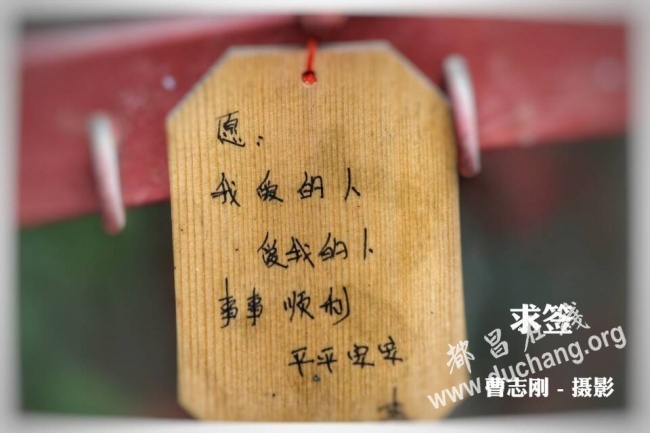 愿：
我爱的人
爱我的人
事事顺利
平平安安
求签
都昌在线
www.duchang.org
曹志刚 - 摄影